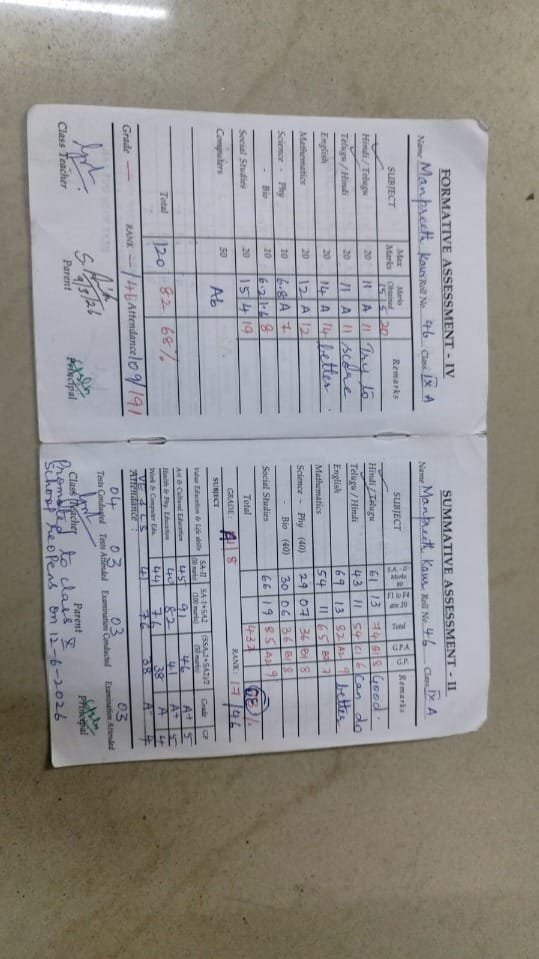 FORMATIVE ASSESSMENT - IV
Name Manpreeth Kaur Roll No. 46 Class IX A
SUBJECT Max Marks Marks Obtained Remarks
15 5 20
Hindi / Telugu 20 11 A 11 Try to
Telugu / Hindi 20 11 A 11 score
English 20 14 A 14 better.
Mathematics 20 12 A 12
Science - Phy 10 6.8 A 7
- Bio 10 8
Social Studies 20 15 4 19
Computers 50 Ab
Total 120 82 68%
Grade — RANK —/46 Attendance 109/191
Class Teacher Parent Principal
SUMMATIVE ASSESSMENT - II
Name Manpreeth Kaur Roll No. 46 Class IX A
SUBJECT Total G.P.A Remarks
Hindi / Telugu 61 13 74 B1 8 Good.
Telugu / Hindi 43 11 54 C1 6 Can do
English 69 13 82 A2 9 better
Mathematics 54 11 65 B2 7
Science - Phy (40) 29 07 36 B1 8
- Bio (40) 30 06 36 B1 8
Social Studies 66 19 85 A2 9
Total 432 68%
GRADE: A 8 RANK: 17/46
SUBJECT SA-II (50 marks) SA-1+SA2 (100 marks) (SSA-1+SA2)/2 (50 marks) Grade GP
Value Education & Life skills 45 91 46 A+ 5
Art & Cultural Education 40 82 41 A+ 5
Health & Phy. Education 44 76 38 A 4
Work & Computer Edu. 41 76 38 A 4
Attendance :
04 03 03 03
Tests Conducted Tests Attended Examination Conducted Examination Attended
Class Teacher Parent Principal
Promoted to class X
School ReOpens on 12-6-2026